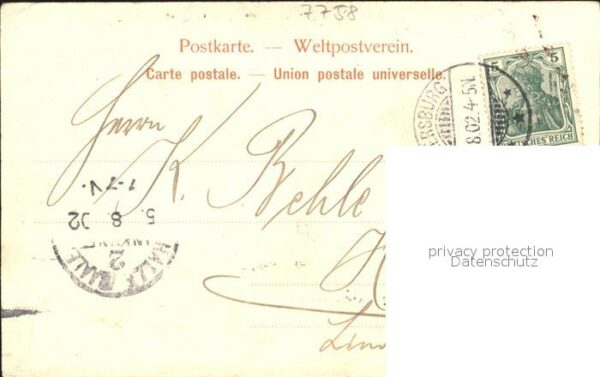 7758
Postkarte. — Weltpostverein.
Carte postale. — Union postale universelle.
5 5
ERSBURG
8.02.4-5N.
DEUTSCHES REICH
Herrn
K. Behle
1-7V.
5. 8. 02
2
HALLE SAALE
privacy protection
Datenschutz